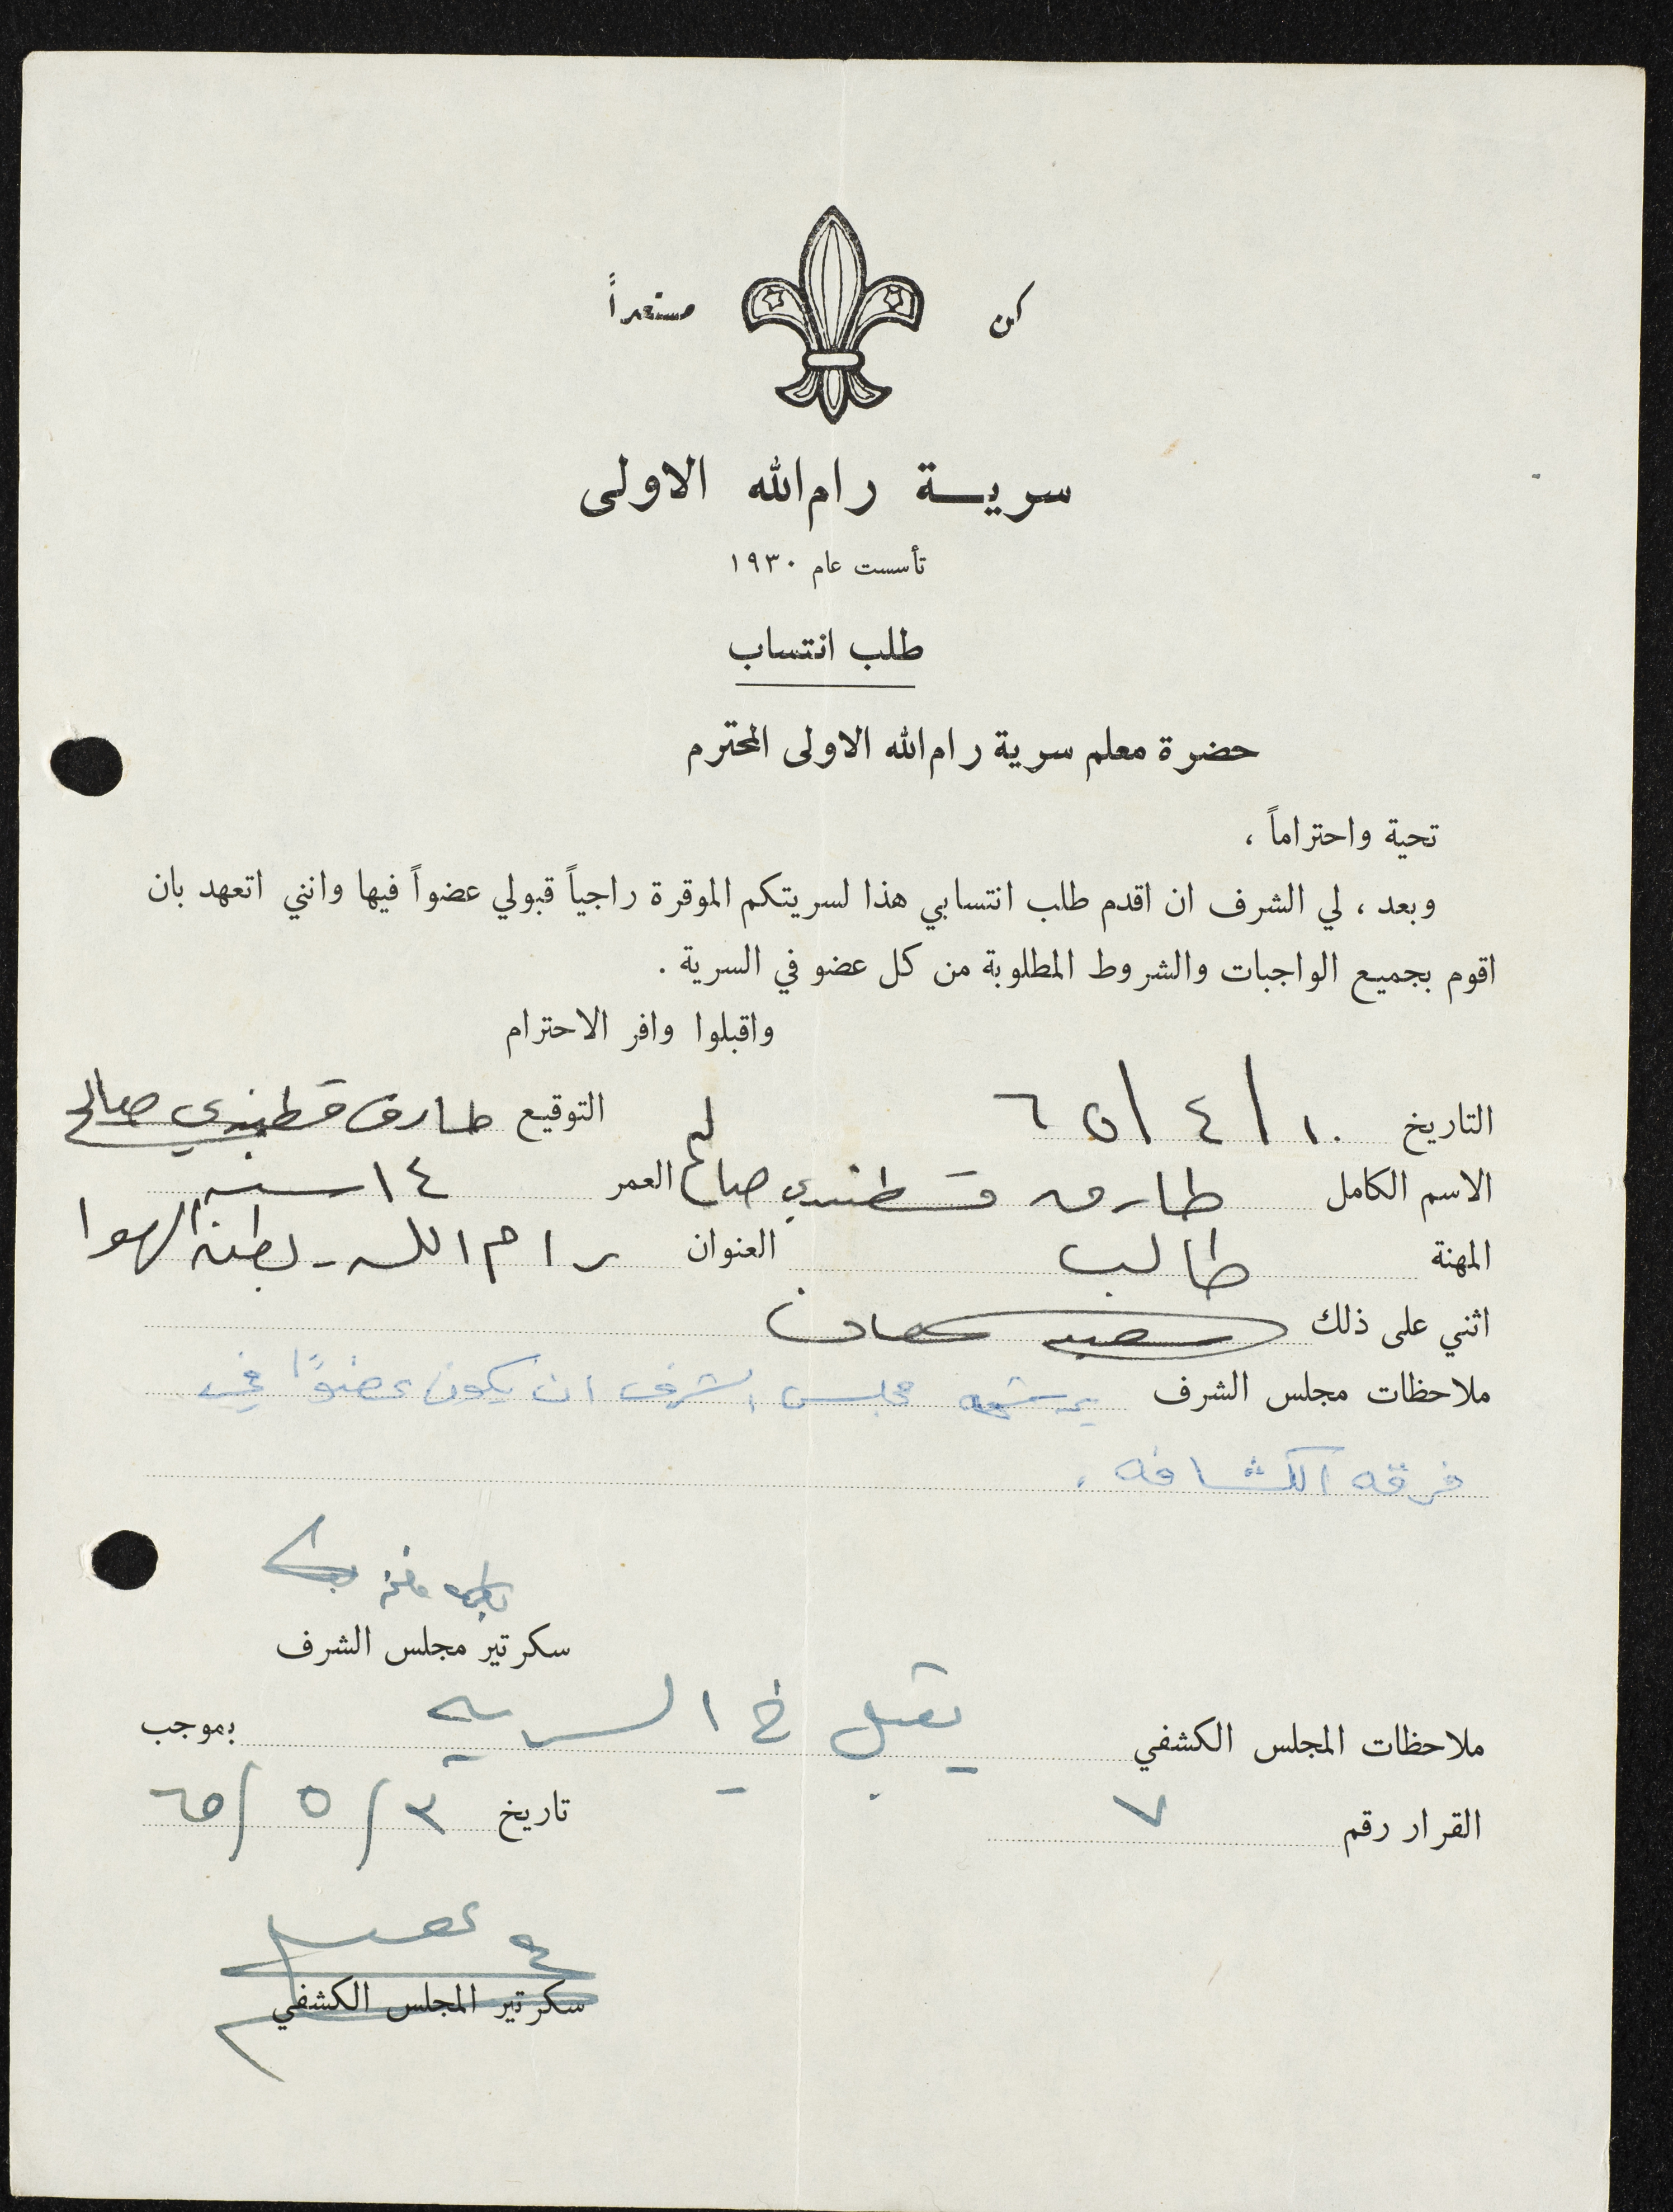 كن مستعداً
سرية رام الله الاولى
تأسست عام ١٩٣٠
طلب انتساب
حضرة معلم سرية رام الله الاولى المحترم
تحية واحتراماً ،
وبعد ، لي الشرف ان اقدم طلب انتسابي هذا لسريتكم الموقرة راجياً قبولي عضواً فيها وانني اتعهد بان
اقوم بجميع الواجبات والشروط المطلوبة من كل عضو في السرية .
واقبلوا وافر الاحترام
التاريخ ١٠/٤/٦٥ التوقيع طارق قسطندي صالح
الاسم الكامل طارق قسطندي صالح العمر ١٤ سنه
المهنة طالب العنوان رام الله - بطن الهوا
اثني على ذلك
ملاحظات مجلس الشرف مجلس الشرف ان يكون عضوًا في
فرقه الكشافه .
سكرتير مجلس الشرف
ملاحظات المجلس الكشفي يقبل في السريه بموجب
القرار رقم ٧ تاريخ ٣/٥/٦٥
سكرتير المجلس الكشفي